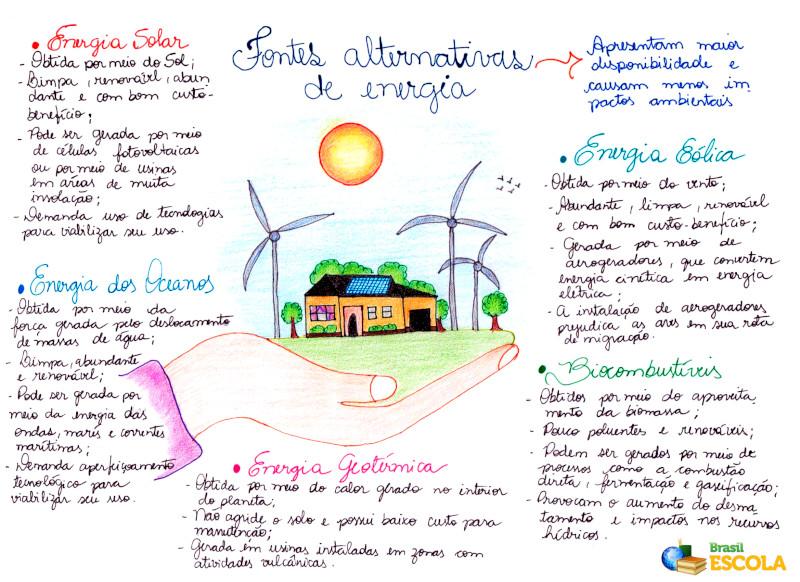 Fontes alternativas
de energia
Apresentam maior
disponibilidade e
causam menos im
pactos ambientais
• Energia Solar
- Obtida por meio do Sol;
- Limpa, renovável, abun
dante e com bom custo-
benefício;
- Pode ser gerada por meio
de células fotovoltaicas
ou por meio de usinas
em áreas de muita
insolação;
- Demanda uso de tecnologias
para viabilizar seu uso.
• Energia Eólica
- Obtida por meio do vento;
- Abundante, limpa, renovável
e com bom custo-benefício;
- Gerada por meio de
aerogeradores, que convertem
energia cinética em energia
elétrica;
- A instalação de aerogeradores
prejudica as aves em sua rota
de migração.
• Energia dos Oceanos
- Obtida por meio da
força gerada pelo deslocamento
de massas de água;
- Limpa, abundante
e renovável;
- Pode ser gerada por
meio da energia das
ondas, marés e correntes
marítimas;
- Demanda aperfeiçoamento
tecnológico para
viabilizar seu uso.
• Biocombustíveis
- Obtidos por meio do aproveita
mento da biomassa;
- Pouco poluentes e renováveis;
- Podem ser gerados por meio de
processos como a combustão
direta, fermentação e gaseificação;
- Provocam o aumento do desma
tamento e impactos nos recursos
hídricos.
• Energia Geotérmica
- Obtida por meio do calor gerado no interior
do planeta;
- Não agride o solo e possui baixo custo para
manutenção;
- Gerada em usinas instaladas em zonas com
atividades vulcânicas.
Brasil
ESCOLA